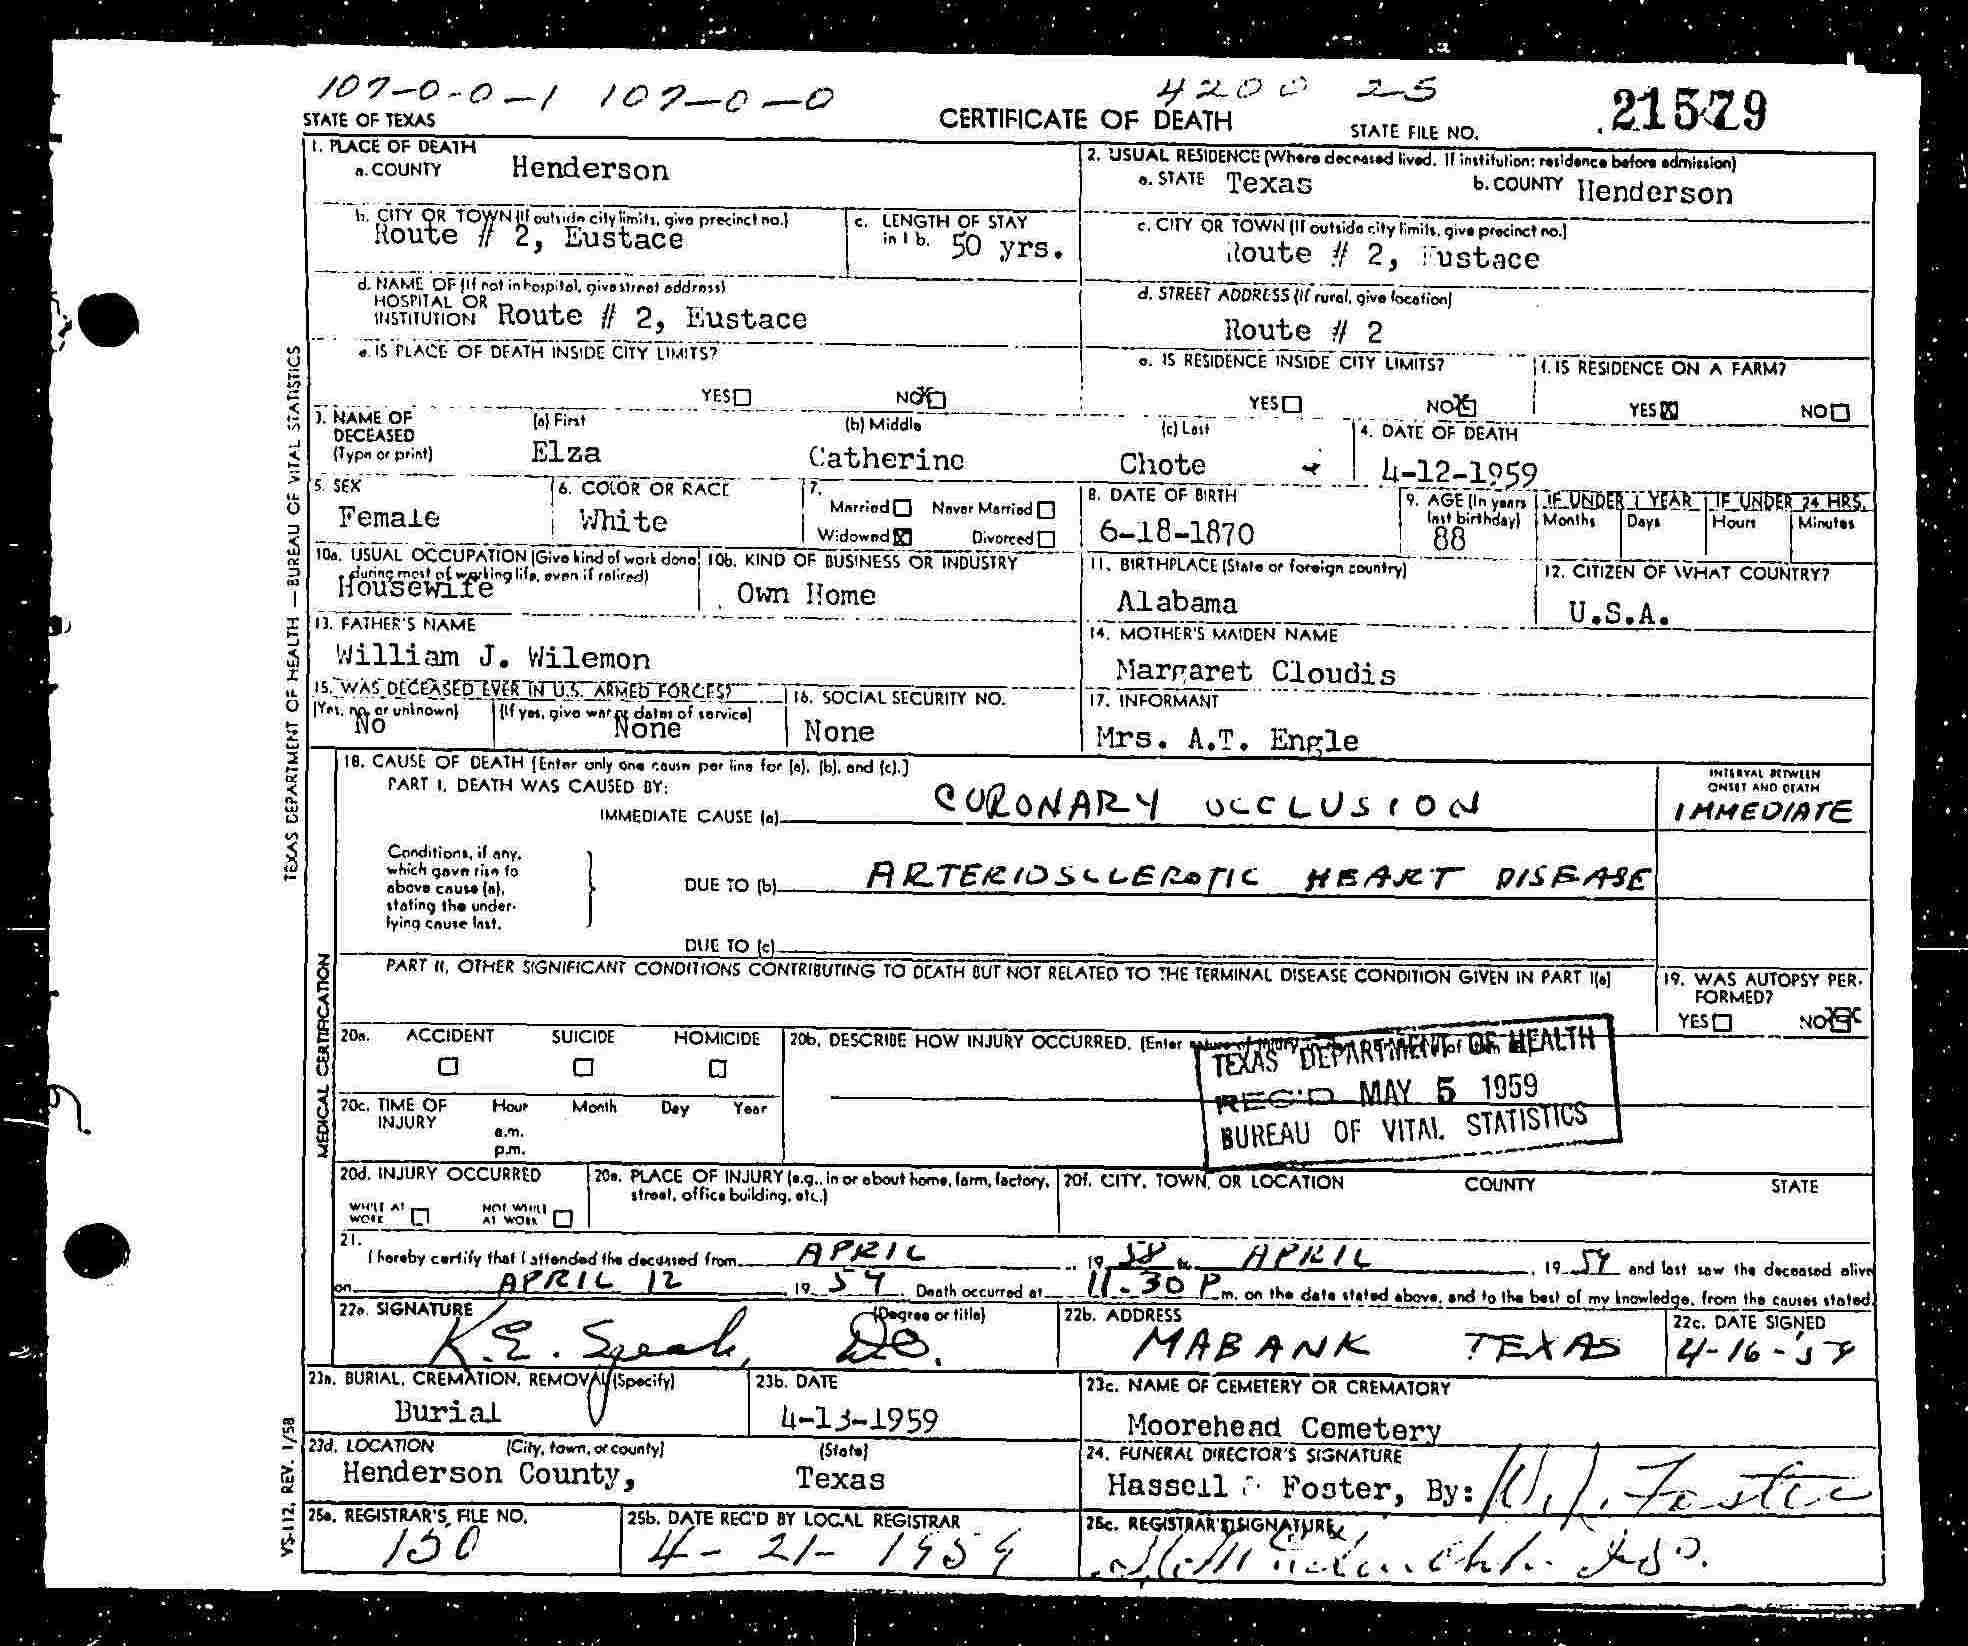 107-0-0-1 107-0-0 4200 25
STATE OF TEXAS CERTIFICATE OF DEATH STATE FILE NO. 21579
1. PLACE OF DEATH
a. COUNTY Henderson
2. USUAL RESIDENCE (Where deceased lived. If institution: residence before admission)
a. STATE Texas b. COUNTY Henderson
b. CITY OR TOWN (If outside city limits, give precinct no.)
Route # 2, Eustace
c. LENGTH OF STAY
in 1 b. 50 yrs.
c. CITY OR TOWN (If outside city limits, give precinct no.)
Route # 2, Eustace
d. NAME OF (If not in hospital, give street address)
HOSPITAL OR
INSTITUTION Route # 2, Eustace
d. STREET ADDRESS (If rural, give location)
Route # 2
e. IS PLACE OF DEATH INSIDE CITY LIMITS?
YES NO
e. IS RESIDENCE INSIDE CITY LIMITS?
YES NO
f. IS RESIDENCE ON A FARM?
YES NO
3. NAME OF
DECEASED
(Type or print)
(a) First (b) Middle (c) Last
Elza Catherine Chote
4. DATE OF DEATH
4-12-1959
5. SEX
Female
6. COLOR OR RACE
White
7.
Married Never Married
Widowed Divorced
8. DATE OF BIRTH
6-18-1870
9. AGE (In years
last birthday)
88
IF UNDER 1 YEAR
Months Days
IF UNDER 24 HRS.
Hours Minutes
10a. USUAL OCCUPATION (Give kind of work done
during most of working life, even if retired)
Housewife
10b. KIND OF BUSINESS OR INDUSTRY
Own Home
11. BIRTHPLACE (State or foreign country)
Alabama
12. CITIZEN OF WHAT COUNTRY?
U.S.A.
13. FATHER'S NAME
William J. Wilemon
14. MOTHER'S MAIDEN NAME
Margaret Cloudis
15. WAS DECEASED EVER IN U.S. ARMED FORCES?
(Yes, no, or unknown) (If yes, give war or dates of service)
No None
16. SOCIAL SECURITY NO.
None
17. INFORMANT
Mrs. A.T. Engle
18. CAUSE OF DEATH (Enter only one cause per line for (a), (b), and (c).)
PART I. DEATH WAS CAUSED BY:
IMMEDIATE CAUSE (a) CORONARY OCCLUSION
INTERVAL BETWEEN
ONSET AND DEATH
IMMEDIATE
Conditions, if any,
which gave rise to
above cause (a),
stating the under-
lying cause last.
DUE TO (b) ARTERIOSCLEROTIC HEART DISEASE
DUE TO (c)
PART II. OTHER SIGNIFICANT CONDITIONS CONTRIBUTING TO DEATH BUT NOT RELATED TO THE TERMINAL DISEASE CONDITION GIVEN IN PART I(a)
19. WAS AUTOPSY PER-
FORMED?
YES NO
20a. ACCIDENT SUICIDE HOMICIDE
20b. DESCRIBE HOW INJURY OCCURRED. (Enter
TEXAS DEPARTMENT OF HEALTH
REC'D MAY 5 1959
BUREAU OF VITAL STATISTICS
20c. TIME OF
INJURY
Hour Month Day Year
a.m.
p.m.
20d. INJURY OCCURRED
WHILE AT
WORK
NOT WHILE
AT WORK
20e. PLACE OF INJURY (e.g., in or about home, farm, factory,
street, office building, etc.)
20f. CITY, TOWN, OR LOCATION COUNTY STATE
21.
I hereby certify that I attended the deceased from APRIL 19 58 to APRIL, 19 59 and last saw the deceased alive
on APRIL 12, 19 59. Death occurred at 11:30 P m. on the date stated above, and to the best of my knowledge, from the causes stated.
22a. SIGNATURE (Degree or title)
K.E. D.O.
22b. ADDRESS
MABANK TEXAS
22c. DATE SIGNED
4-16-59
23a. BURIAL, CREMATION, REMOVAL (Specify)
Burial
23b. DATE
4-13-1959
23c. NAME OF CEMETERY OR CREMATORY
Moorehead Cemetery
23d. LOCATION (City, town, or county) (State)
Henderson County, Texas
24. FUNERAL DIRECTOR'S SIGNATURE
Hassell & Foster, By: W.J. Foster
25a. REGISTRAR'S FILE NO.
150
25b. DATE REC'D BY LOCAL REGISTRAR
4-21-1959
25c. REGISTRAR'S SIGNATURE
TEXAS DEPARTMENT OF HEALTH — BUREAU OF VITAL STATISTICS
MEDICAL CERTIFICATION
VS-112, REV. 1/58